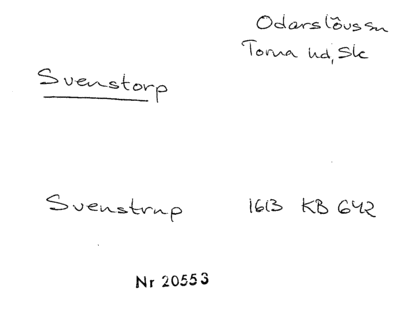 Odarslövs sn
Torna hd, Sk
Svenstorp
Svenstrup 1613 KB 642
Nr 20553